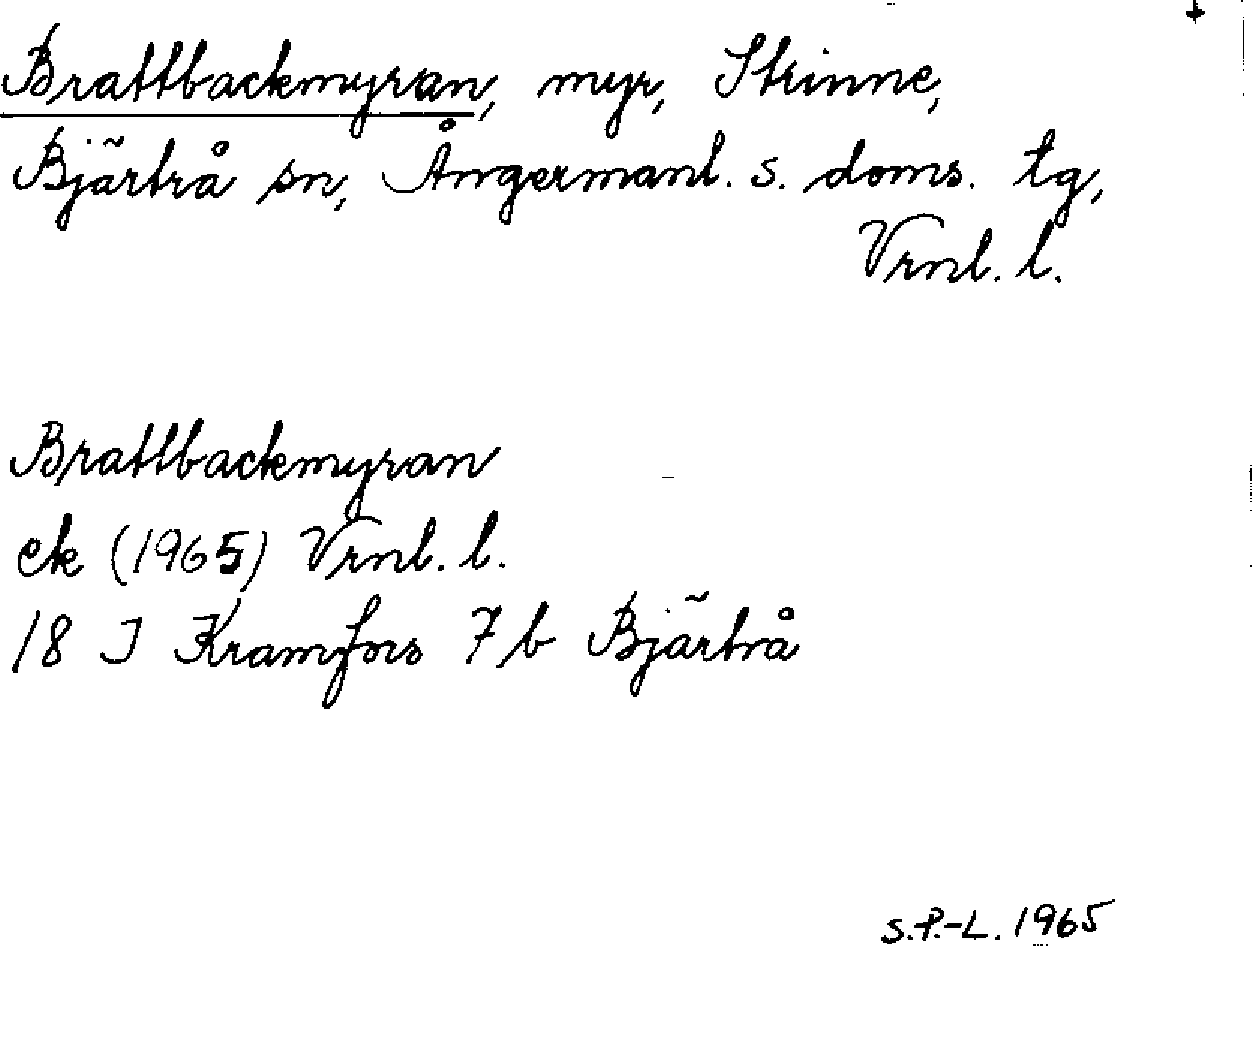 Brattbackmyran, myr, Strinne,
Bjärtrå sn, Ångermanl. s. doms. tg,
Vrnl. l.
Brattbackmyran
ek (1965) Vrnl. l.
18 J Kramfors 7 b Bjärtrå
S.P.-L. 1965